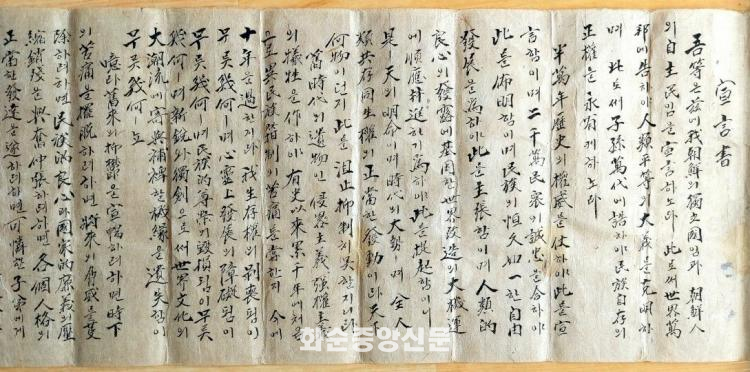 宣言書
吾等은玆에我朝鮮의獨立國임과 朝鮮人
의自主民임을宣言하노라 此로써世界萬
邦에告하야人類平等의大義를克明하
며 此로써子孫萬代에誥하야民族自存의
正權을永有케하노라
半萬年歷史의權威를仗하야此를宣
言함이며二千萬民衆의誠忠을合하야
此를佈明함이며民族의恒久如一한自由
發展을爲하야此를主張함이며人類的
良心의發露에基因한世界改造의大機運
에順應幷進하기爲하야此를提起함이니
是ㅣ天의明命이며時代의大勢며 全人
類共存同生權의正當한發動이라天下
何物이던지此를沮止抑制치못할지니라
舊時代의遺物인侵畧主義强權主義
의犧牲을作하야有史以來累千年에처음
으로異民族箝制의苦痛을嘗한지 今에
十年을過한지라我生存權의剝喪됨이
무릇幾何ㅣ며心靈上發展의障礙됨이
무릇幾何ㅣ며民族的尊榮의毁損됨이무릇
幾何ㅣ며新銳와獨創으로써世界文化의
大潮流에寄與補裨할機緣을遺失함이
무릇幾何ㅣ뇨
噫라舊來의抑鬱을宣暢하려하면時下
의苦痛을擺脫하려하면將來의脅威를芟
除하려하면民族的良心과國家的廉義의壓
縮銷殘을興奮伸張하려하면各個人格의
正當한發達을遂하려하면可憐한子弟에게
화순중앙신문